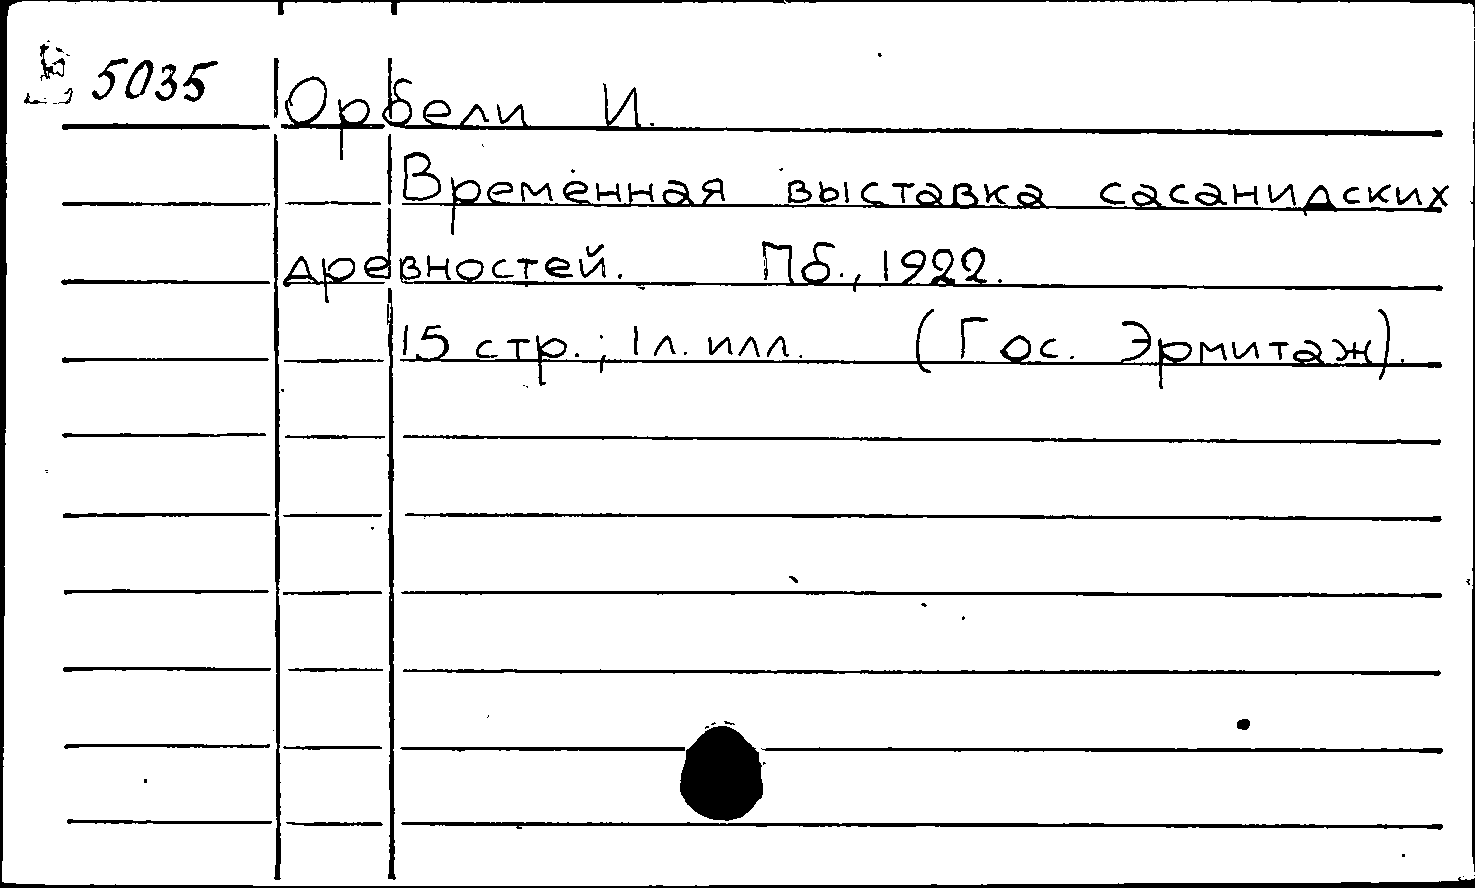 5035
Орбели И.
Временная выставка сасанидских
древностей. Пб., 1922.
15 стр.; 1 л. илл. (Гос. Эрмитаж).